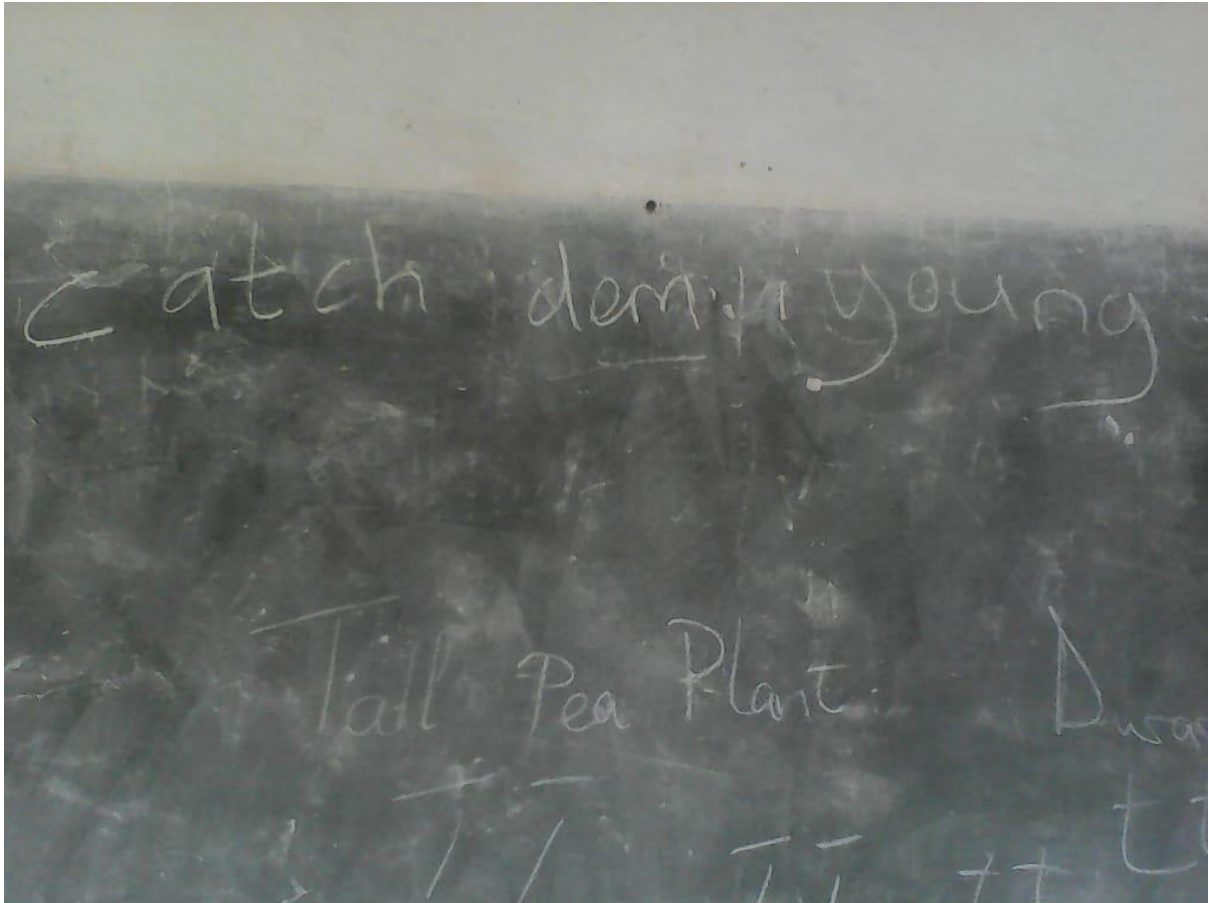 Catch dem young
Tall Pea Plant
TT tt
TT tt